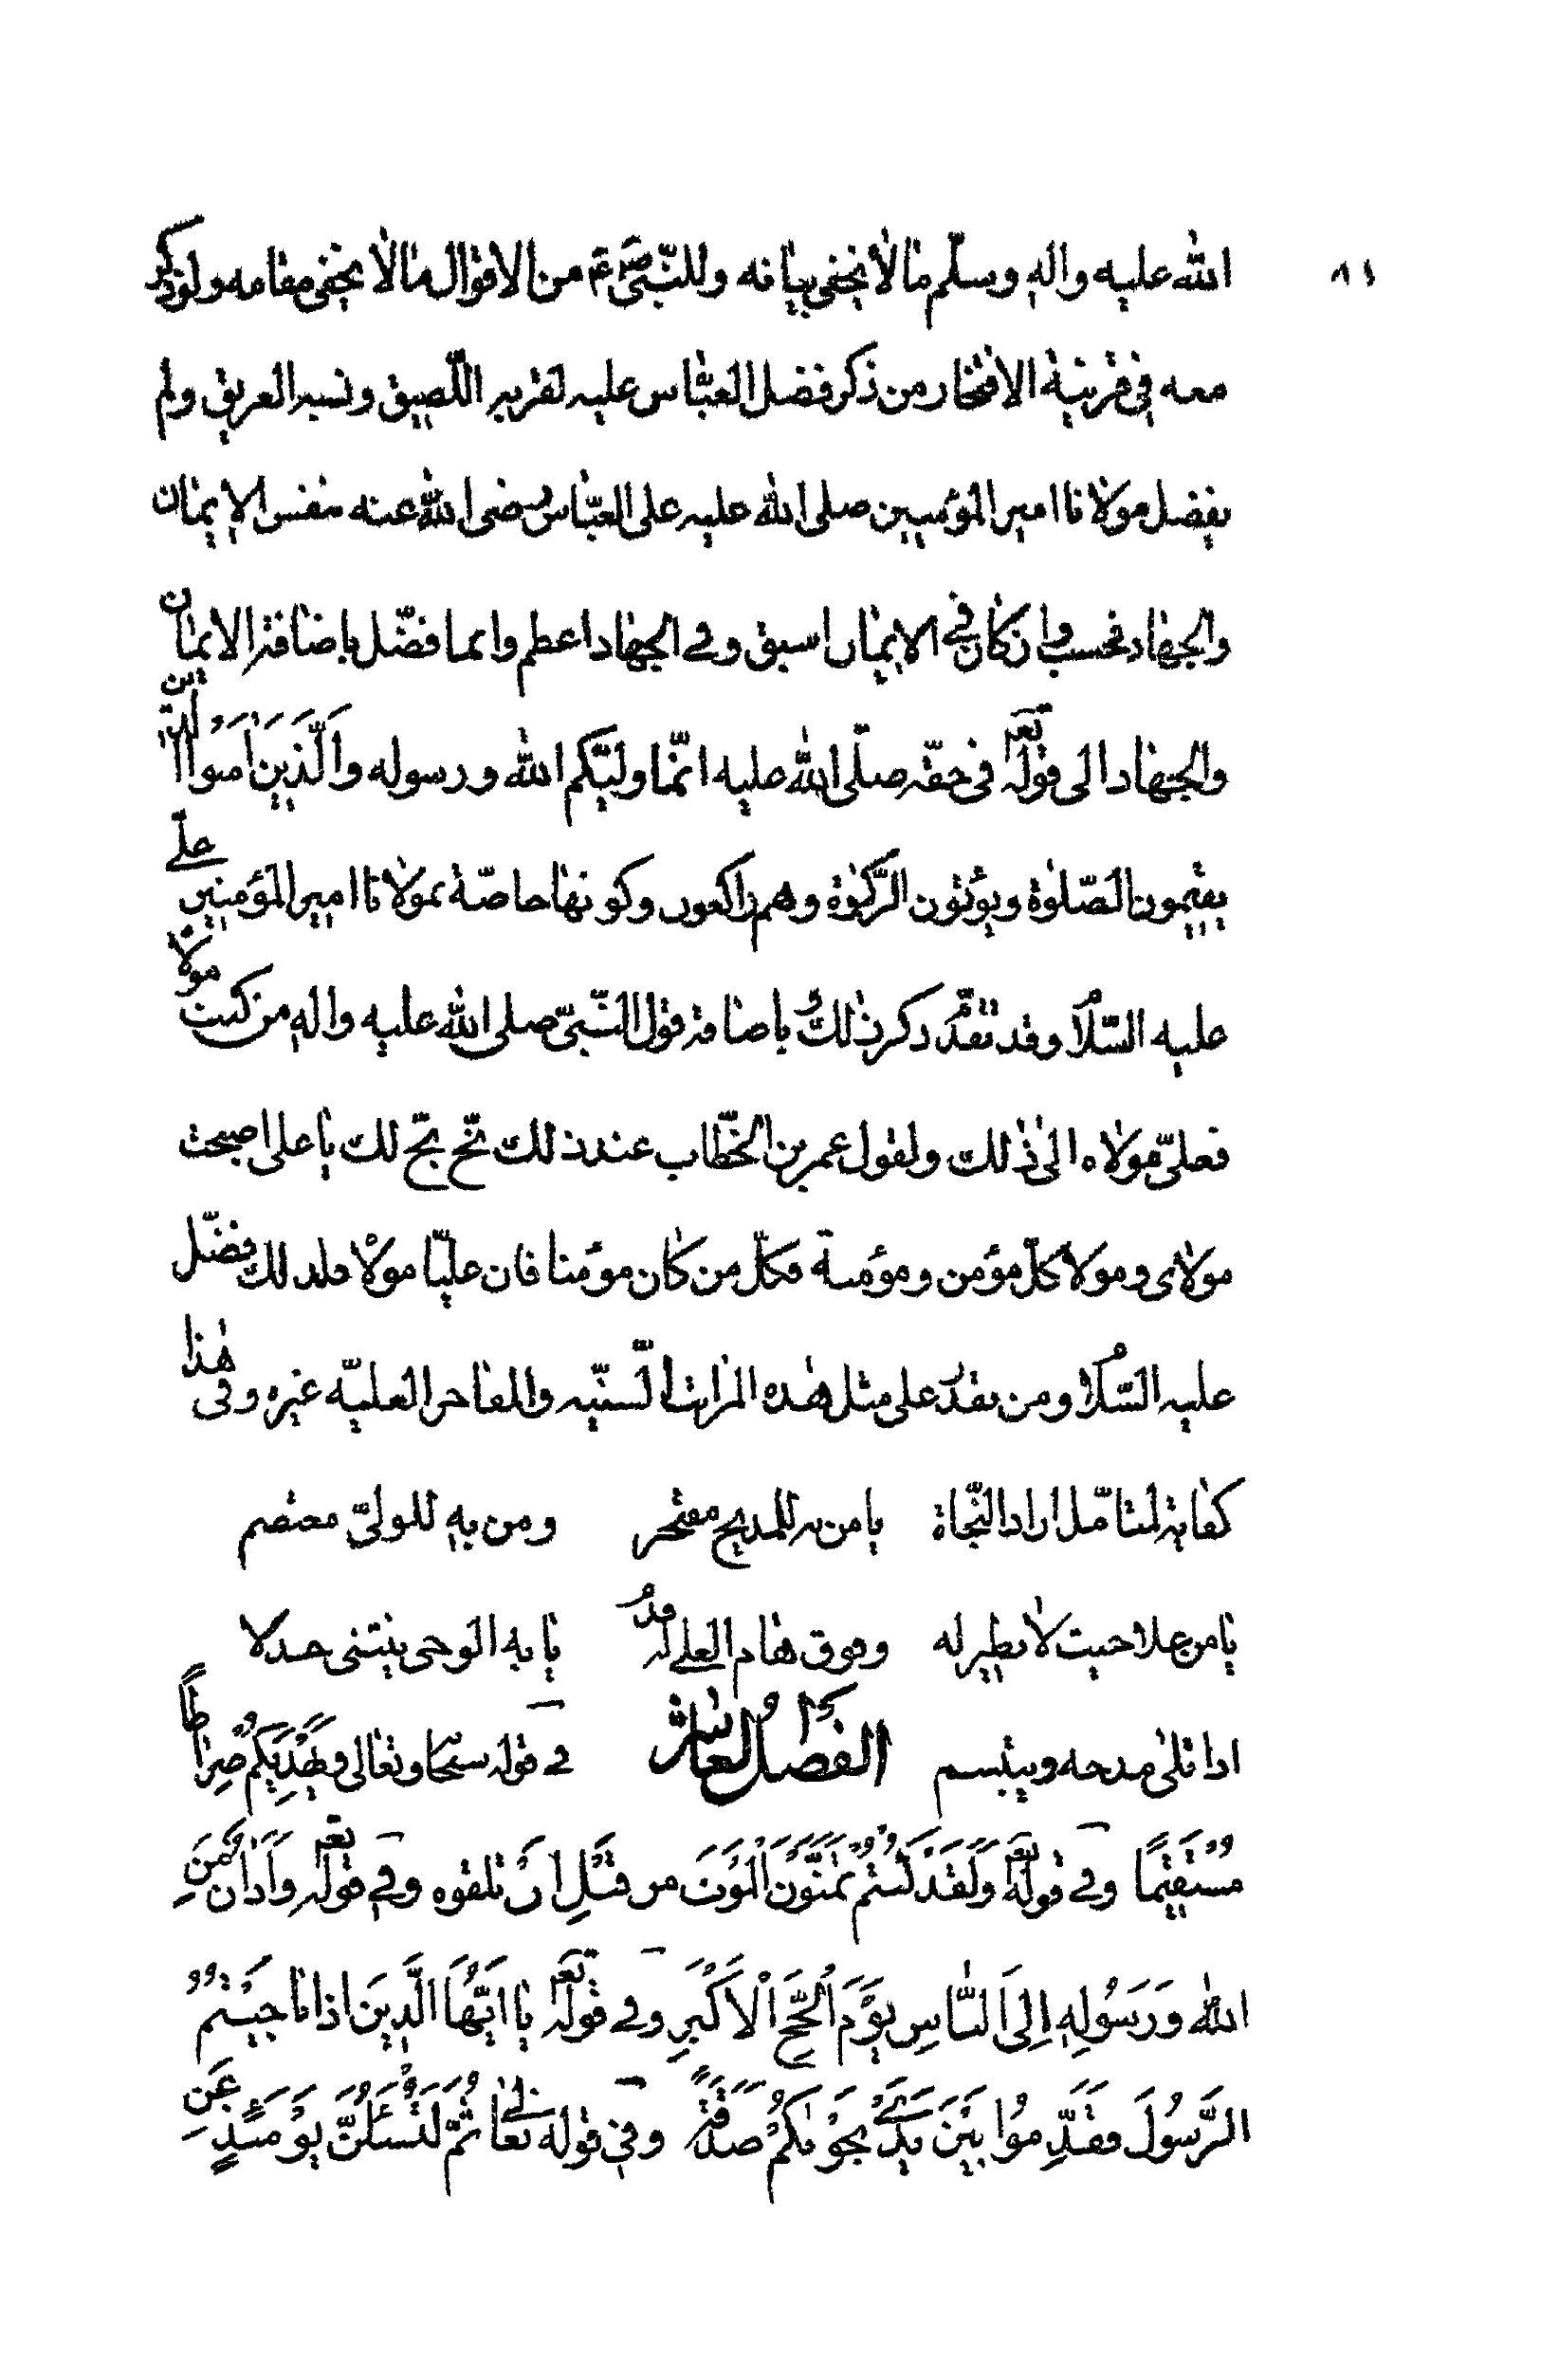 ٨١
الله عليه واله وسلّم ما لا يخفى بيانه وللنّبىّ صٓ عٓ من الاقوال ما لا يخفى مقامه ولو ذكر
معه فى قرينة الافتخار من ذكر فضل العبّاس عليه لقربه اللّصيق ونسبه العريق ولم
يفضل مولانا امير المؤمنين صلى الله عليه على العبّاس رضى الله عنه بنفس الايمان
والجهاد فحسب وان كان فى الايمان اسبق وفى الجهاد اعظم وانما فضّل باضافة الايمان
والجهاد الى قوله تعٓ فى حقّه صلّى الله عليه انّما وليّكم الله ورسوله وَالَّذينَ اٰمَنُوا الذين
يقيمون الصّلوٰة ويؤتون الزّكوٰة وهم راكعون وكونها خاصّة بمولانا امير المؤمنين علىّ
عليه السّلام وقد تقدّم ذكر ذلك وباضافة قول النّبىّ صلى الله عليه واله من كنت مولاه
فعلىّ مولاه الى ذلك ولقول عمر بن الخطّاب عند ذلك بخّ بخّ لك يا على اصبحت
مولاى ومولا كلّ مؤمن ومؤمنة فكلّ من كان مؤمنا فان عليّا مولاه فلذلك فضّل
عليه السّلام ومن يقدر على مثل هذه المراتب السّنيّه والمفاخر العليّه غيره وفى هذا
كفاية لمتامّل اراد النّجاة يا من به للمديح مفتخر ومن به للولىّ معتصم
يا من علا حيث لا يطير له وفوق هام العلى له قدم يا به الوحى ينتنى جدلا
اذا تلى مدحه ويبتسم الفصل العاشر فى قوله سبحانه وتعالى وَيَهْدِيَكُمْ صِرَاطًا
مُسْتَقيمًا وفى قوله تعٓ وَلَقَدْ كُنْتُمْ تَمَنَّوْنَ الْمَوْتَ من قَبْلِ اَنْ تلقوه وفى قوله تعٓ وَاَذَانٌ مِنَ
الله وَرَسُولِهِ اِلَى النَّاسِ يَوْمَ الْحَجِّ الْاَكْبَرِ وفى قوله تعٓ يا اَيُّهَا الَّذِينَ اذا ناجَيْتُمُ
الرَّسُولَ فَقَدِّمُوا بَيْنَ يَدَىْ نجوٰيكُمْ صَدَقَةً وفى قوله تعالى ثُمَّ لَتُسْئَلُنَّ يَوْمَئِذٍ عَنِ